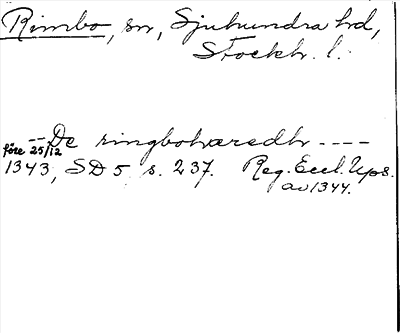 Rimbo, sn, Sjuhundra hd,
Stockh. l.
-- De ringbohæredh ----
före 25/12
1343, SD 5 s. 237. Reg. Eccl. Ups.
av 1344.